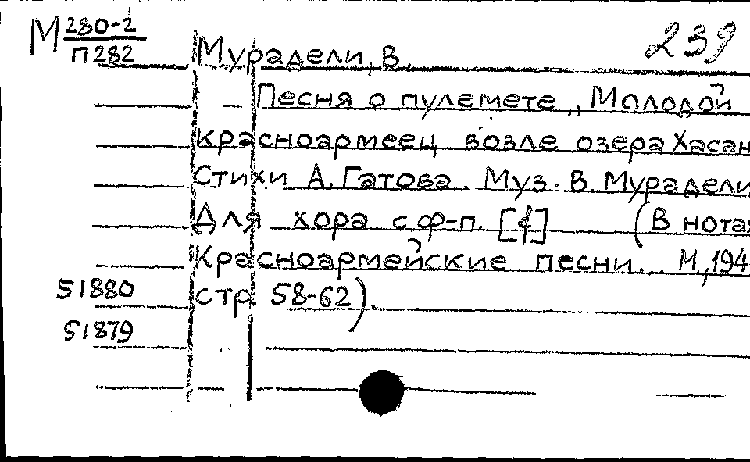 М 280-2
П 282
239
Мурадели, В.
Песня о пулемете „Молодой
красноармеец возле озера Хасан
Стихи А. Гатова. Муз. В. Мурадели
Для хора с ф-п. [f] (В нотах
Красноармейские песни. М, 194
51880 стр 58-62).
51879